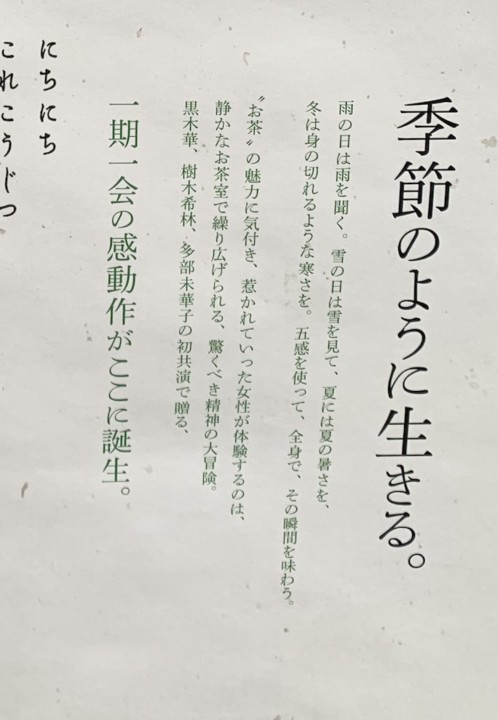 季節のように生きる。
雨の日は雨を聞く。雪の日は雪を見て、夏には夏の暑さを、
冬は身の切れるような寒さを。五感を使って、全身で、その瞬間を味わう。
〝お茶〟の魅力に気付き、惹かれていった女性が体験するのは、
静かなお茶室で繰り広げられる、驚くべき精神の大冒険。
黒木華、樹木希林、多部未華子の初共演で贈る、
一期一会の感動作がここに誕生。
にちにち
これこうじつ